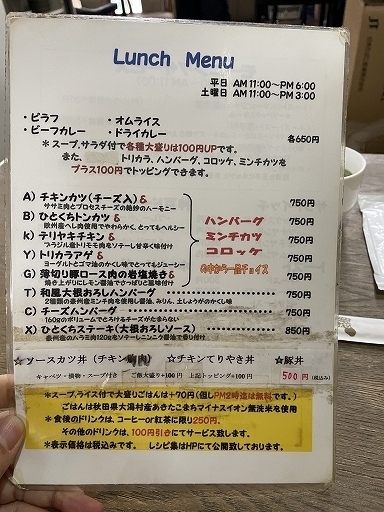 Lunch Menu
平日 AM11:00～PM6:00
土曜日 AM11:00～PM3:00
・ピラフ ・オムライス
・ビーフカレー ・ドライカレー 各650円
＊スープ,サラダ付で各種大盛りは100円UPです。
また、 トリカラ、ハンバーグ、コロッケ、ミンチカツを
プラス100円でトッピングできます。
A) チキンカツ(チーズ入) & 750円
ササミ肉とプロセスチーズの絶妙のハーモニー
B) ひとくちトンカツ & 750円
欧州産ヘレ肉使用でやわらかく、とってもヘルシー
k) テリヤキチキン & 750円
ブラジル産トリモモ肉をソテーし甘辛く味付け
Y) トリカラアゲ & 750円
ヨーグルトとゴマ油のかくし味でとってもジューシー
G) 薄切り豚ロース肉の岩塩焼き & 750円
焼き上がりにレモン醤油でさっぱりと風味付け
ハンバーグ
ミンチカツ
コロッケ
の中から一品チョイス
T) 和風大根おろしハンバーグ 750円
2種類の豪州産ミンチ肉を使用し醤油、みりん、土しょうがのかくし味
C) チーズハンバーグ 750円
160gのボリュームでとろけるチーズがたまらない
X) ひとくちステーキ(大根おろしソース) 850円
豪州産のハラミ肉120gをソテーしニンニク醤油で香り付け
☆ソースカツ丼(チキン胸肉) ☆チキンてりやき丼 ☆豚丼
キャベツ・漬物・スープ付き ご飯大盛り+100円 上記トッピング+100円 500円(税込み)
＊スープ,ライス付で大盛りごはんは+70円(但しPM2時迄は無料です。)
ごはんは秋田県大潟村産あきたこまちマイナスイオン無洗米を使用
＊食後のドリンクは、コーヒーor紅茶に限り250円。
その他のドリンクは、100円引きにてサービス致します。
＊表示価格は税込みです。 レシピ集はHPにて公開致しております。